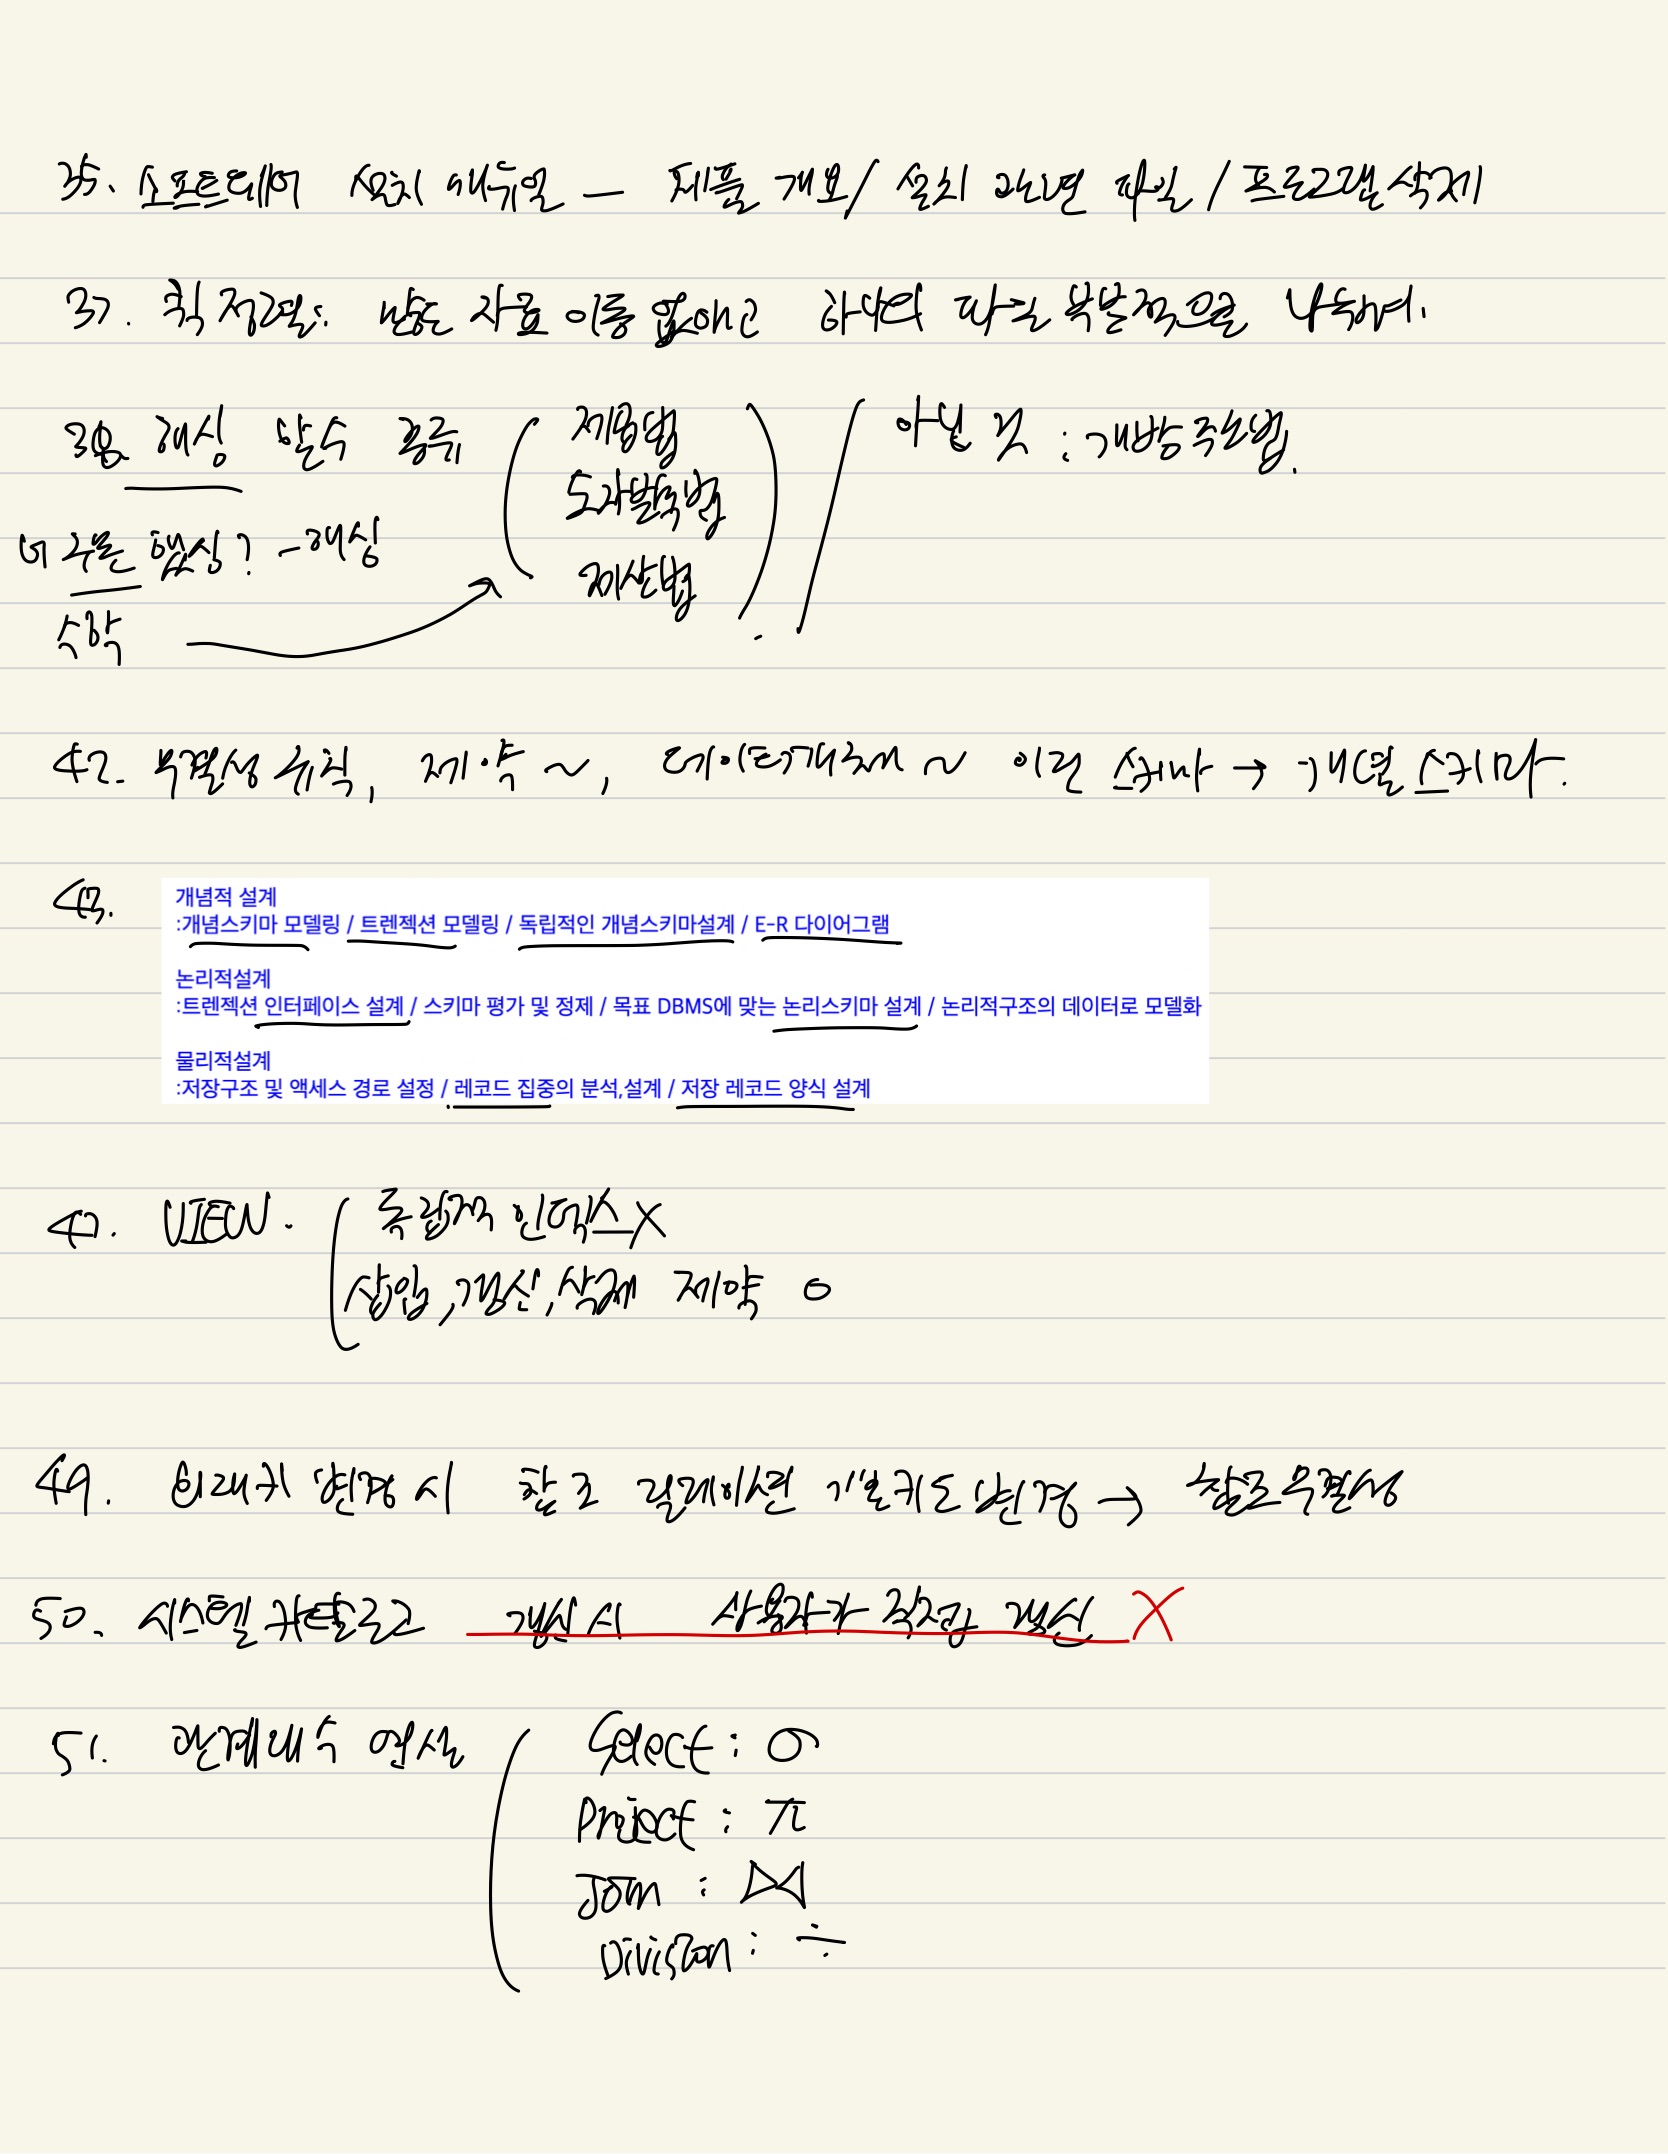 35. 소프트웨어 설치 매뉴얼 — 제품 개요 / 설치 관련 파일 / 프로그램 삭제
37. 퀵 정렬: 많은 자료 이동 없애고 하나의 파일 부분적으로 나누며.
38. 해싱 함수 종류 ( 제곱법 / 아닌 것 : 개방주소법.
숫자분석법
제산법 )
너 수분 햅싱? - 해싱
수학 →
42. 무결성 규칙, 제약 ~, 데이터개체 ~ 이런 스키마 → 개념 스키마.
43. 개념적 설계
:개념스키마 모델링 / 트렌젝션 모델링 / 독립적인 개념스키마설계 / E-R 다이어그램
논리적설계
:트렌젝션 인터페이스 설계 / 스키마 평가 및 정제 / 목표 DBMS에 맞는 논리스키마 설계 / 논리적구조의 데이터로 모델화
물리적설계
:저장구조 및 액세스 경로 설정 / 레코드 집중의 분석,설계 / 저장 레코드 양식 설계
47. VIEW. ( 독립적 인덱스 X
삽입, 갱신, 삭제 제약 O
49. 외래키 변경 시 참조 릴레이션 기본키도 변경 → 참조무결성
50. 시스템 카탈로그 갱신 시 사용자가 직접 갱신 X
51. 관계대수 연산 ( Select : σ
Project : π
Join : ⋈
Division : ÷